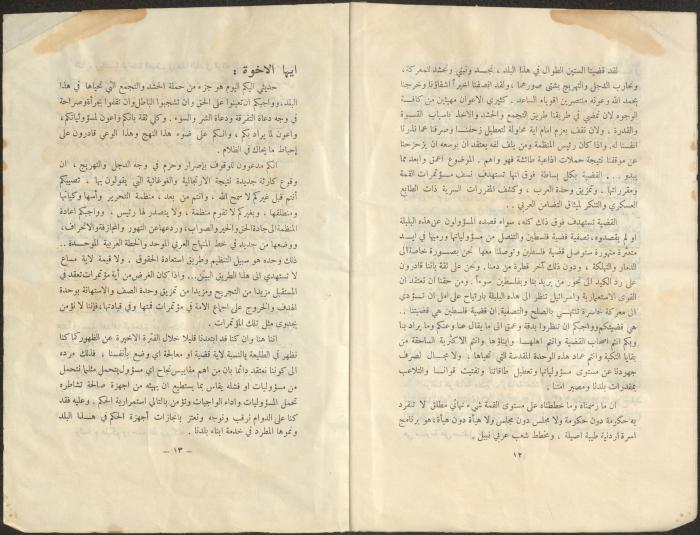 لقد قضينا السنين الطوال في هذا البلد، نجد ونبني ونحشد للمعركة،
ونحارب الدجل والتهريج بشتى صورهما، ولقد انفضنا اخيراً اشقاؤنا وخرجنا
بحمد الله وعونه منتصرين اقوياء الساعد. كثيري الاعوان مهيئين من كافة
الوجوه لان نمضي في طريقنا طريق التجمع والحشد والاخذ باسباب القوة
والقدرة، ولان نقف بعزم امام اية محاولة لتعطيل زحفنا وصرفنا عما نذرنا
انفسنا له. واذا كان رئيس المنظمة ومن يلف لفه يعتقد ان بوسعه ان يزحزحنا
عن موقفنا نتيجة حملات اذاعية هائمة فهو واهم. الموضوع اعمق وابعد مما
يبدو ... القضية بكل بساطة فوق انها تستهدف نسف مؤتمرات القمة
ومقرراتها. وتمزيق وحدة العرب، وكشف المقررات السرية ذات الطابع
العسكري والتنكر لميثاق التضامن العربي ..
القضية تستهدف فوق ذلك كله، سواء قصده المسؤولون عن هذه البلبلة
او لم يقصدوه، تصفية قضية فلسطين والتنصل من مسؤولياتها ورميها في ايد
متعثرة متهورة ستوصل قضية فلسطين وتوصلنا معها نحن بصورة خاصة الى
الدمار والتهلكة، ودون ذلك آخر قطرة من دمنا. ونحن على ثقة باننا قادرون
على رد الكيد الى نحور من يريد بنا وبفلسطين سوءاً. ومن حقنا ان نعتقد ان
القوى الاستعمارية واسرائيل تنظر الى هذه البلبلة بارتياح على امل ان تؤدي
الى معركة خاسرة تنتهي بالصلح والتصفية ان قضية فلسطين هي قضيتنا ..
هي قضيتكم وواجبكم ان تنظروا بدقة وعمق الى ما يقال عنا وعنكم وما يراد بنا
وبكم انتم اصحاب القضية وانتم اهلها وابناؤها وانتم الاكثرية الساحقة من
بقايا النكبة وانتم عماد هذه الوحدة المقدسة التي نحياها، ولا مجال لصرف
جهودنا عن مستوى مسؤولياتها وتعطيل طاقاتنا وتفتيت قواتنا والتلاعب
بمقدرات بلدنا ومصير امتنا.
ان ما رسمناه وما خططناه على مستوى القمة شيء نهائي مطلق لا تنفرد
به حكومة دون حكومة ولا مجلس دون مجلس ولا هيأة دون هيأة، هو برنامج
اسرة اردنية طيبة اصيلة، ومخطط شعب عربي نبيل.
١٢
ايها الاخوة :
حديثي اليكم اليوم هو جزء من حملة الحشد والتجمع التي نحياها في هذا
البلد، وواجبكم ان تعينوا على الحق وان تشجبوا الباطل وان تقفوا بجرأة وصراحة
في وجه دعاة التفرقة ودعاة الشر والسوء. وكلي ثقة بانكم واعون لمسؤولياتكم،
واعون لما يراد بكم، وانكم على ضوء هذا النهج وهذا الوعي قادرون على
إحباط ما يحاك في الظلام.
انكم مدعوون للوقوف بإصرار وحزم في وجه الدجل والتهريج، ان
وقوع كارثة جديدة نتيجة الارتجالية والغوغائية التي يقولون بها، تصيبكم
أنتم قبل غيركم لا سمح الله، وانتم من بعد، منظمة التحرير وأسها وكيانها
ومنطلقها، وبغيركم لا تقوم منظمة، ولا يتصدر لها رئيس، وواجبكم اعادة
المنظمة الى جادة الحق والخير والصواب، وردعها عن التهور والمجازفة والانحراف،
ووضعها من جديد في خط المنهاج العربي الموحد والخطة العربية الموحدة ..
ذلك وحده هو سبيل التنظيم وطريق استعادة الحقوق. ولا قيمة لاية مساع
لا تستهدي الى هذا الطريق البيّن ... واذا كان الغرض من أية مؤتمرات تعقد في
المستقبل مزيدا من التجريح ومزيدا من تمزيق وحدة الصف والاستهانة بوحدة
الهدف والخروج على اجماع الامة في مؤتمرات قمتها وفي قيادتها، فإننا لا نؤمن
بجدوى مثل تلك المؤتمرات.
اننا هنا وان كنا قد ابتعدنا قليلا خلال الفترة الاخيرة عن الظهور كما كنا
نظهر في الطليعة بالنسبة لاية قضية او معالجة اي وضع بأنفسنا، فذلك مرده
الى كوننا نعتقد دائما بان من اهم مقاييس نجاح اي مسؤول يتحمل مثلما نتحمل
من مسؤوليات او فشله يقاس بما يستطيع ان يهيئه من اجهزة صالحة تشاطره
تحمل المسؤوليات واداء الواجبات وتؤمن بالتالي استمرارية الحكم. وعليه فقد
كنا على الدوام نرقب ونوجه ونعتز بانجازات أجهزة الحكم في هذا البلد
ونموها المطرد في خدمة ابناء بلدنا.
— ١٣ —